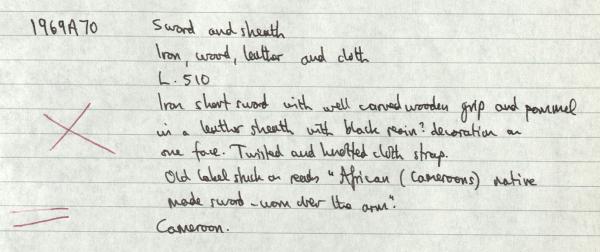 1969A70 Sword and sheath
Iron, wood, leather and cloth
L. 510
Iron short sword with well carved wooden grip and pommel
in a leather sheath with black resin? decoration on
one face. Twisted and knotted cloth strap.
Old label stuck on reads "African (Cameroons) native
made sword - worn over the arm".
Cameroon.